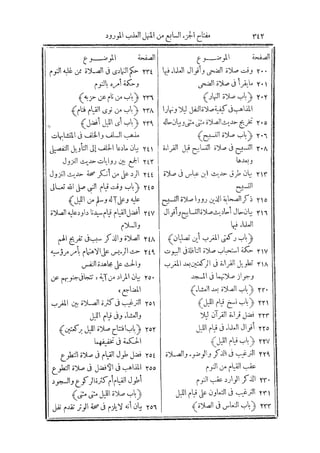 ٣٤٢ مفتاح الجزء السابع من المنهل العذب المورود
الصفحة الموضـــوع
٢٠٠ وقت صلاة الضحى وأقوال العلماء فيها
٢٠١ مايقرأ فى صلاة الضحى
٢٠٢ (باب صلاة النهار)
المذاهب فى كيفية صلاة النفل ليلا ونهارا
٢٠٥ تخريج حديث الصلاة مثنى مثنى وبيان حاله
٢٠٦ (باب صلاة التسبيح)
٢٠٨ التسبيح فى صلاة التسابيح قبل القراءة وبعدها
٢١٣ بيان طرق حديث ابن عباس فى صلاة التسبيح
٢١٥ ذكر الصحابة الذين رووا صلاة التسبيح
٢١٦ بيان حال أحاديث صلاة التسابيح وأقوال العلماء فيها
(باب ركعتى المغرب أين تصليان)
٢١٧ حكمة استحباب صلاة النافلة فى البيوت
٢١٨ تطويل القراءة فى الركعتين بعد المغرب وجواز صلاتهما فى المسجد
٢٢٠ (باب الصلاة بعد العشاء)
٢٢١ (باب نسخ قيام الليل)
٢٢٣ فضل قراءة القرآن ليلا
٢٢٥ أقوال العلماء فى قيام الليل
٢٢٧ (باب قيام الليل)
٢٢٩ الترغيب فى الذكر والوضوء والصلاة عقب القيام من النوم
٢٣٠ الذكر الوارد عقب النوم
٢٣١ الترغيب فى التعاون على قيام الليل
٢٣٣ (باب النعاس فى الصلاة)
الصفحة الموضـــوع
٢٣٤ حكم التمادى فى الصلاة ممن غلبه النوم وحكمة أمره بالنوم
٢٣٦ (باب من نام عن حزبه)
٢٣٨ (باب من نوى القيام فنام)
٢٣٩ (باب أى الليل أفضل)
مذهب السلف والخلف فى المتشابهات
٢٤١ بيان مادعا الخلف إلى التأويل التفصيلى
٢٤٢ الجمع بين روايات حديث النزول
٢٤٤ الرد على من أنكر صحة حديث النزول
٢٤٥ (باب وقت قيام النبى صلى الله تعالى عليه وعلى آله وسلم من الليل)
٢٤٧ أفضل القيام قيام سيدنا داود عليه الصلاة والسلام
٢٤٨ الصلاة والذكر سبب فى تفريج الهم
٢٤٩ حرص الرئيس على الاهتمام بأمر مرؤسيه والحث على مجاهدة النفس
٢٥٠ بيان المراد من آية ، تتجافى جنوبهم عن المضاجع ،
٢٥١ الترغيب فى كثرة الصلاة بين المغرب والعشاء وفى قيام الليل
٢٥٢ (باب افتتاح صلاة الليل بركعتين)
الحكمة فى تخفيفهما
٢٥٤ فضل طول القيام فى صلاة التطوع
٢٥٥ المذاهب فى الأفضل فى صلاة التطوع أطول القيام أم كثرة الركوع والسجود
(باب صلاة الليل مثنى مثنى)
٢٥٦ بيان أنه لايلزم فى صحة الوتر تقدم نفل